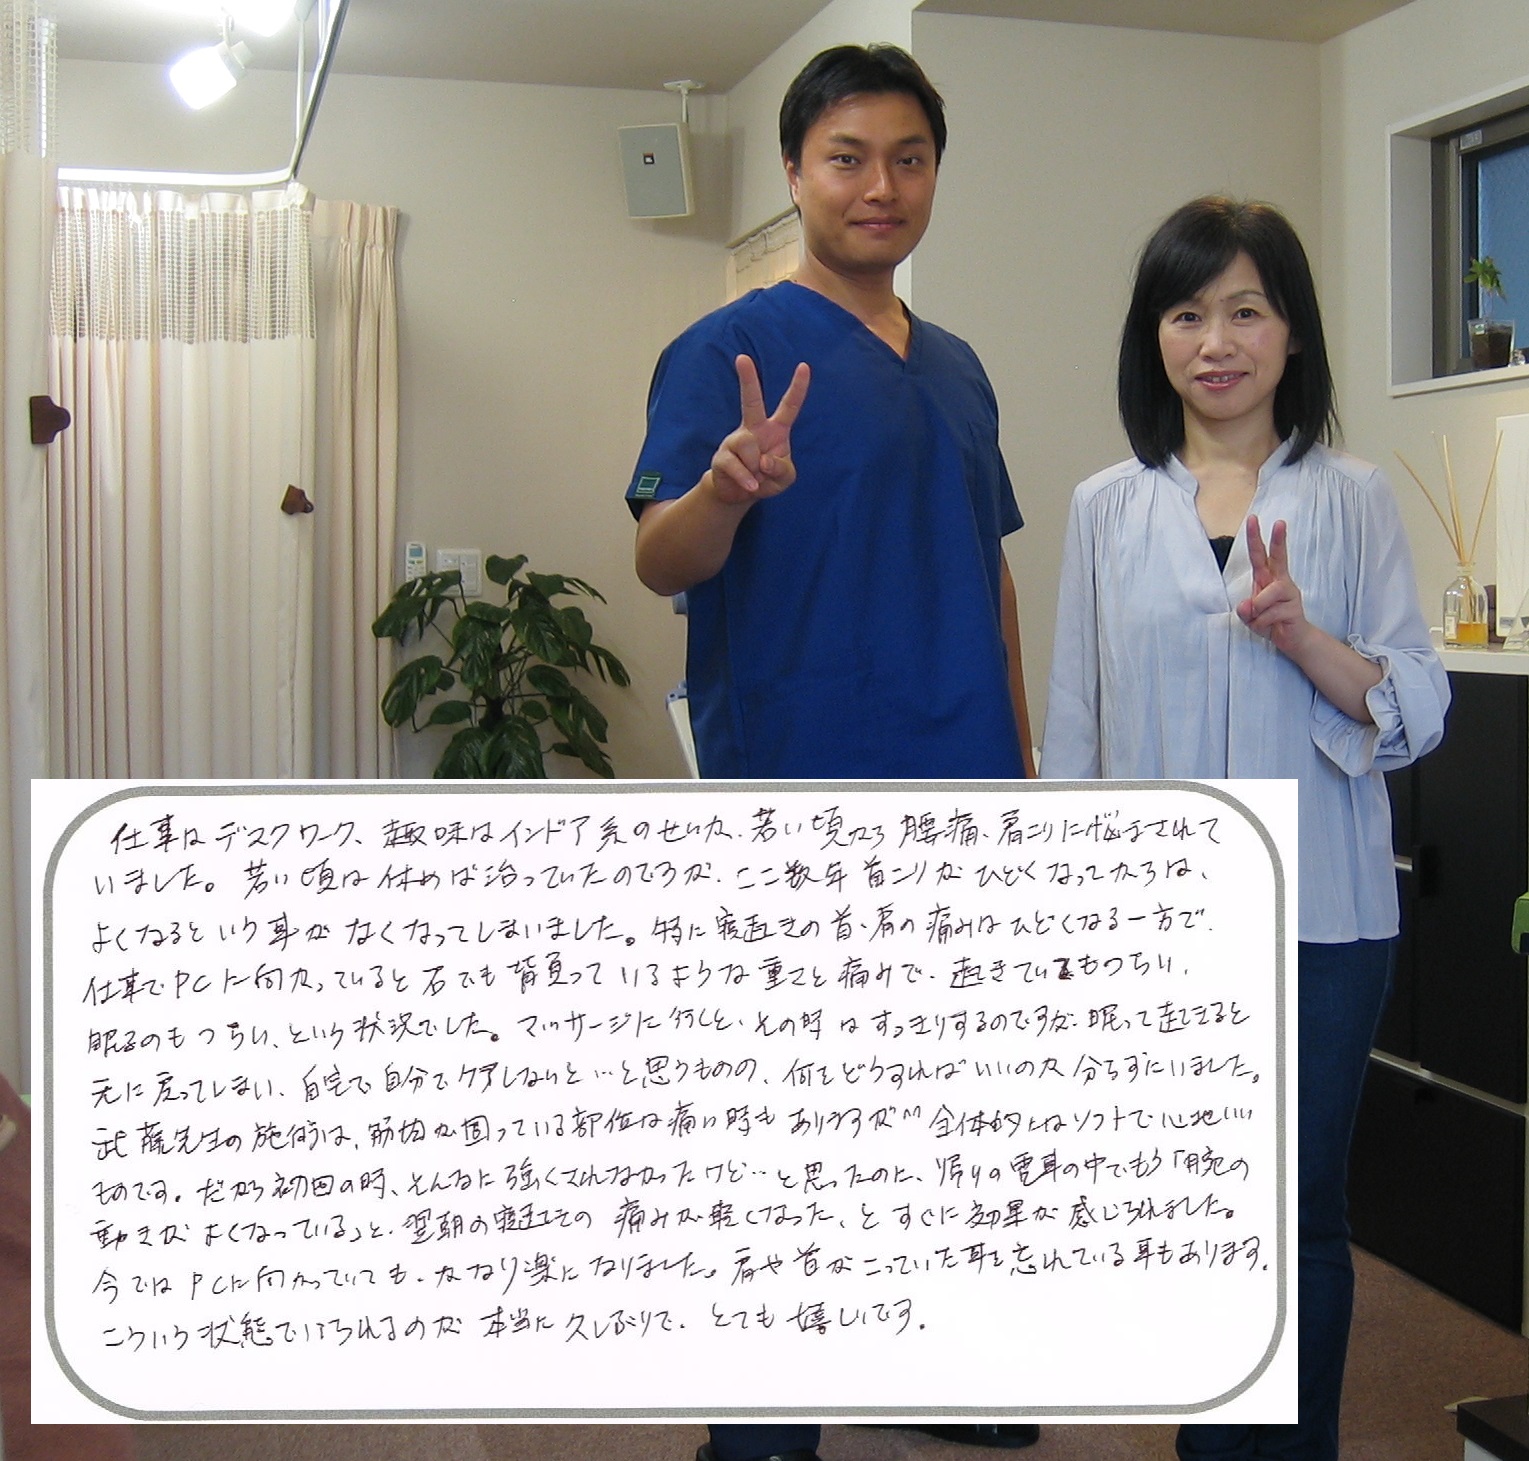 仕事はデスクワーク、趣味はインドア系のせいか、若い頃から腰痛、肩こりに悩まされて
いました。若い頃は休めば治っていたのですが、ここ数年首こりがひどくなってからは、
よくなるという事がなくなってしまいました。特に寝起きの首・肩の痛みはひどくなる一方で、
仕事でPCに向かっていると石でも背負っているような重さと痛みで、起きていてもつらい、
眠るのもつらい、という状況でした。マッサージに行くと、その時はすっきりするのですが、眠って起きると
元に戻ってしまい、自宅で自分でケアしないと…と思うものの、何をどうすればいいのか分らずにいました。
武藤先生の施術は、筋肉が固っている部位は痛い時もありますが^^ 全体的にはソフトで心地いい
ものです。だから初回の時、そんなに強くされなかったけど…と思ったのに、帰りの電車の中でもう「腕の
動きがよくなっている」と、翌朝の寝起きの痛みが軽くなった、とすぐに効果が感じられました。
今ではPCに向かっていても、かなり楽になりました。肩や首がこっていた事を忘れている事もあります。
こういう状態でいられるのが本当に久しぶりで、とても嬉しいです。